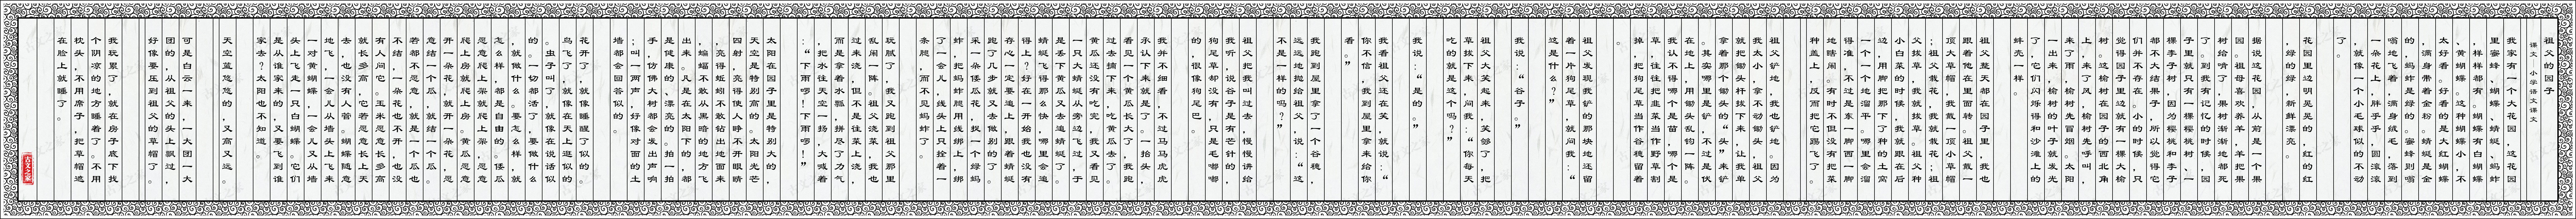 祖父的园子
课文 小学语文课文
我家有一个大花园，这花园
里蜜蜂、蝴蝶、蜻蜓、蚂蚱
，样样都有。蝴蝶有白蝴蝶
、黄蝴蝶。这种蝴蝶小，不
太好看。好看的是大红蝴蝶
，满身带着金粉。蜻蜓是金
的，蚂蚱是绿的。蜜蜂则嗡
嗡地飞着，满身绒毛，落到
一朵花上，胖乎乎，圆滚滚
，就像一个小毛球似的不动
了。
花园里边明晃晃的，红的红
，绿的绿，新鲜漂亮。
据说这花园，从前是一个果
园。祖母喜欢养羊，羊把果
树给啃了，果树渐渐地都死
了。到我有记忆的时候，园
子里就只有一棵樱桃树、一
棵李子树，因为樱桃和李子
都不大结果子，所以觉得它
们并不存在。小的时候，只
觉得园子里边就有一棵大榆
树。这榆树在园子的西北角
上，来了风，榆树先呼叫，
来了雨，榆树先冒烟。太阳
一出来，榆树的叶子就发光
了，它们闪烁得和沙滩上的
蚌壳一样。
祖父整天都在园子里，我也
跟着他在里面转。祖父戴一
顶大草帽，我戴一顶小草帽
；祖父栽花，我就栽花；祖
父拔草，我就拔草。祖父种
小白菜的时候，我就跟在后
边，用脚把那下了种的土窝
一个一个地溜平。哪里会溜
得准，不过是东一脚西一脚
地瞎闹。有时不但没有把菜
种盖上，反而把它踢飞了。
祖父铲地，我也铲地。因为
我太小，拿不动锄头，祖父
就把锄头杆拔下来，让我单
拿着那个锄头的“头”来铲
。其实哪里是铲，不过是伏
在地上，用锄头乱钩一阵。
我认不得哪个是苗，哪个是
草，往往把韭菜当作野草割
掉，把狗尾草当作谷穗留着
。
祖父发现我铲的那块地还留
着一片狗尾草，就问我：“
这是什么？”
我说：“谷子。”
祖父大笑起来，笑够了，把
草拔下来，问我：“你每天
吃的就是这个吗？”
我说：“是的。”
我看祖父还在笑，就说：“
你不信，我到屋里拿来给你
看。”
我跑到屋里拿了一个谷穗，
远远地抛给祖父，说：“这
不是一样的吗？”
祖父把我叫过去，慢慢讲给
我听，说谷子是有芒针的，
狗尾草却没有，只是毛嘟嘟
的，很像狗尾巴。
我并不细看，不过马马虎虎
承认下来就是了。一抬头，
看见一个黄瓜长大了，我跑
过去摘下来，吃黄瓜去了。
黄瓜还没有吃完，我又看见
一只大蜻蜓从旁边飞过，于
是丢下黄瓜又去追蜻蜓了。
蜻蜓飞得那么快，哪里会追
得上？好在一开始我也没有
存心一定要追上，跟着蜻蜓
跑了几步就又去做别的了。
采一朵倭瓜花，捉一个绿蚂
蚱，把蚂蚱腿用线绑上，绑
了一会儿，线头上只拴着一
条腿，而不见蚂蚱了。
玩腻了，我又跑到祖父那里
乱闹一阵。祖父浇菜，我也
过来浇，但不是往菜上浇，
而是拿着水瓢，拼尽了力气
，把水往天空一扬，大喊着
：“下雨啰！下雨啰！”
太阳在园子里是特别大的，
天空是特别高的。太阳光芒
四射，亮得使人睁不开眼睛
，亮得蚯蚓不敢钻出地面来
，蝙蝠不敢从黑暗的地方飞
出来。凡是在太阳下的，都
是健康的、漂亮的。拍一拍
手，仿佛大树都会发出声响
；叫一两声，好像对面的土
墙都会回答似的。
花开了，就像睡醒了似的。
鸟飞了，就像在天上逛似的
。虫子叫了，就像在说话似
的。一切都活了，要做什么
，就做什么。要怎么样，就
怎么样，都是自由的。倭瓜
愿意爬上架就爬上架，愿意
爬上房就爬上房。黄瓜愿意
开一朵花，就开一朵花，愿
意结一个瓜，就结一个瓜。
若都不愿意，就是一个瓜也
不结，一朵花也不开，也没
有人问它。玉米愿意长多高
就长多高，它若愿意长上天
去，也没有人管。蝴蝶随意
地飞，一会儿从墙头上飞来
一对黄蝴蝶，一会儿又从墙
头上飞走一只白蝴蝶。它们
是从谁家来的，又要飞到谁
家去？太阳也不知道。
天空蓝悠悠的，又高又远。
可是白云一来，一大团一大
团的，从祖父的头上飘过，
好像要压到祖父的草帽了。
我玩累了，就在房子底下找
个阴凉的地方睡着了。不用
枕头，不用席子，把草帽遮
在脸上就睡了。